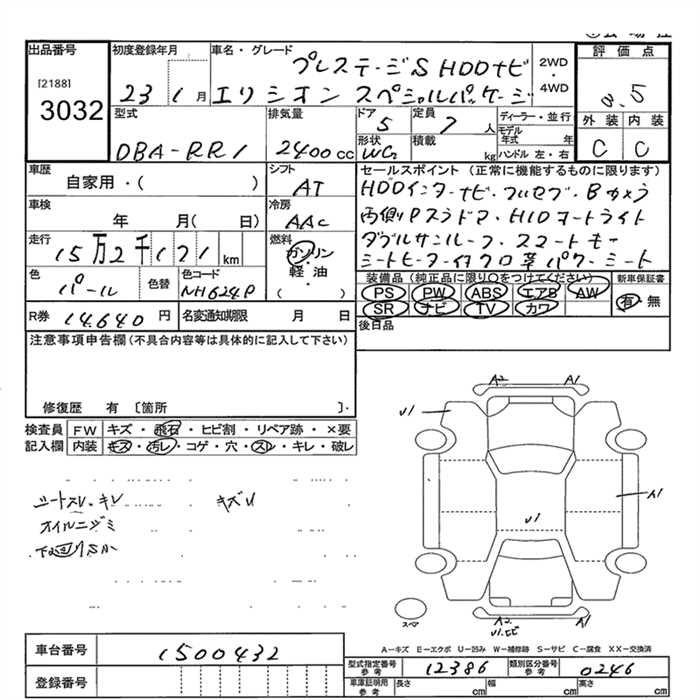 出品番号
[2188]
3032
初度登録年月
23 1月
車名・グレード
プレステージS HDDナビ
エリシオン スペシャルパッケージ
2WD
・
4WD
評価点
3.5
外装 内装
C C
型式
DBA-RR1
排気量
2400cc
ドア
5
形状
WG
定員
7人
積載
kg
ディーラー・並行
モデル年式 年
ハンドル 左・右
車歴
自家用・( )
シフト
AT
車検
年 月( 日)
冷房
AAC
走行
15万2千121km
燃料
ガソリン
軽油
( )
色
パール
色替
色コード
NH624P
R券
14.640円
名変通知期限 月 日
セールスポイント(正常に機能するものに限ります)
HDDインターナビ・フルセグ・Bカメラ
両側Pスラドア・HIDオートライト
ダブルサンルーフ・スマートキー
シートヒーター付クロ革パワーシート
装備品(純正品に限り○をつけてください)
PS PW ABS エアB AW
SR ナビ TV カワ
新車保証書
有・無
後日品
注意事項申告欄(不具合内容等は具体的に記入して下さい)
修復歴 有 〔箇所 〕.
検査員記入欄
FW キズ・飛石・ヒビ割・リペア跡・×要
内装 キズ・汚レ・コゲ・穴・スレ・キレ・破レ
シートスレ・キレ キズU
オイルニジミ
下廻りサビ
A2 A1
U1
A1
U1
A2
スペア
A-キズ E-エクボ U-凹み W-補修跡 S-サビ C-腐食 XX-交換済
車台番号
1500432
登録番号
型式指定番号参考
12386
類別区分番号参考
0246
車庫証明用参考
長さ cm 幅 cm 高さ cm